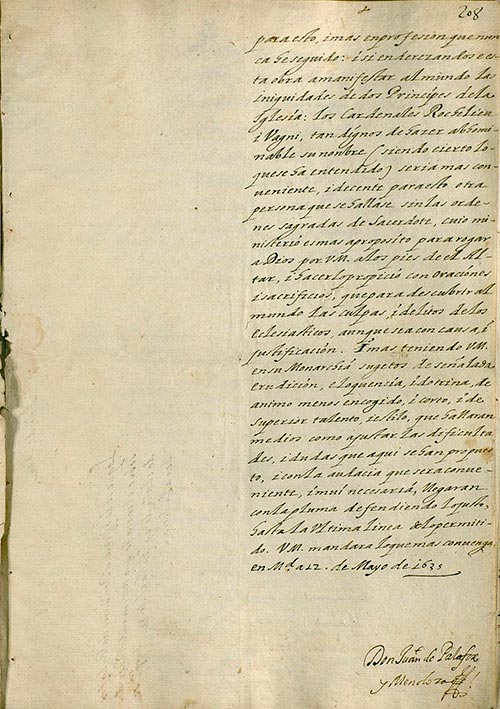 208
para esto, i mas en profesion que nun
ca he seguido: i si enderezandose es
ta obra a manifestar al mundo las
iniquidades de dos Principes de la
Iglesia: los Cardenales Rochilieu
i Vagni, tan dignos de hazer abhomi
nable su nombre (siendo cierto lo
que se ha entendido) seria mas con
veniente, i decente para esto otra
persona que se hallase sin las orde
nes sagradas de Sacerdote, cuio mi
nisterio es mas aproposito para rogar
a Dios por V.M. a los pies de el Al
tar, i hacerlo propicio con oraciones
i sacrificios, que para descubrir al
mundo las culpas, i delitos de los
Eclesiasticos, aunque sea con causa, i
justificación. I mas teniendo V.M.
en su Monarchia sugetos de señalada
erudición, eloquencia, i dotrina, de
animo menos encogido, i corto, i de
superior talento, i estilo, que hallaran
medios como ajustar las dificulta
des, i dudas que aqui se han propues
to, i con la audacia que sera conve
niente, i mui necesaria, llegaran
con la pluma defendiendo lo justo,
hasta la Ultima linea de lo permiti
do. V.M. mandara lo que mas convenga.
en Md. a 12. de Mayo de 1635
Don Juan de Palafox
y Mendoza